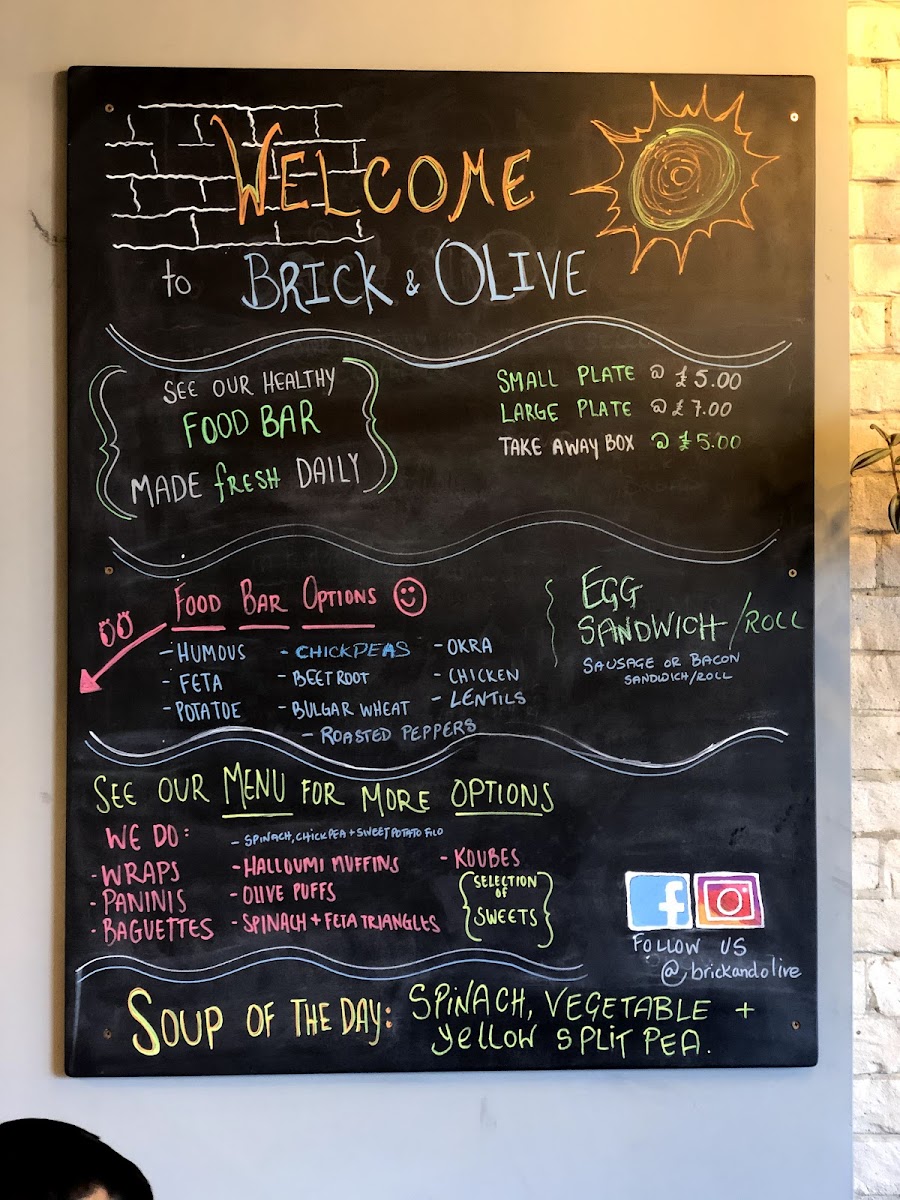 WELCOME
to BRICK & OLIVE
SEE OUR HEALTHY
FOOD BAR
MADE fRESH DAILY
SMALL PLATE @ £5.00
LARGE PLATE @ £7.00
TAKE AWAY BOX @ £5.00
FOOD BAR OPTIONS
- HUMOUS
- FETA
- POTATOE
- CHICKPEAS
- BEETROOT
- BULGAR WHEAT
- OKRA
- CHICKEN
- LENTILS
- ROASTED PEPPERS
EGG
SANDWICH/ROLL
SAUSAGE OR BACON
SANDWICH/ROLL
SEE OUR MENU FOR MORE OPTIONS
WE DO:
- WRAPS
- PANINIS
- BAGUETTES
- SPINACH, CHICKPEA + SWEET POTATO FILO
- HALLOUMI MUFFINS
- OLIVE PUFFS
- SPINACH + FETA TRIANGLES
- KOUBES
SELECTION
OF
SWEETS
f
FOLLOW US
@brickandolive
SOUP OF THE DAY: SPINACH, VEGETABLE +
yellow SPLIT PEA.